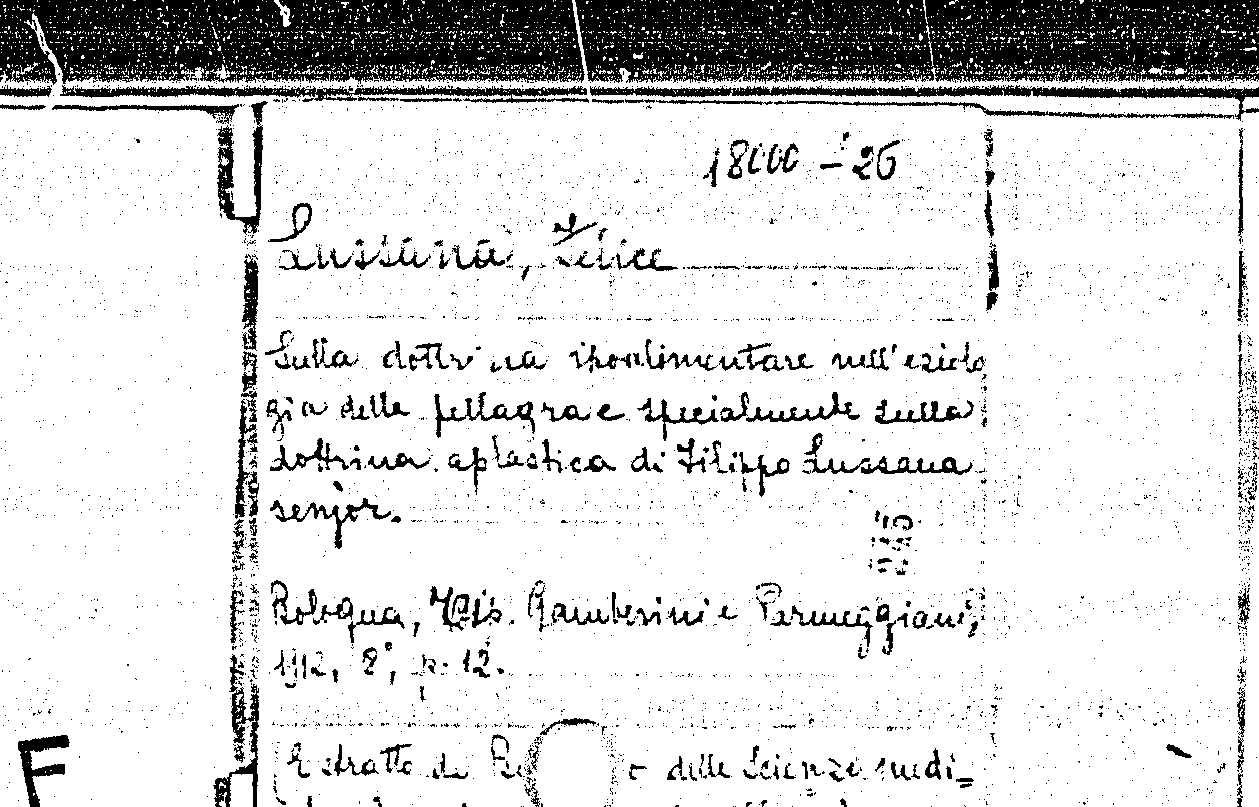 18000 - 26
Lussana, Felice
Sulla dottrina isoalimentare nell'eziolo
gia della pellagra e specialmente sulla
dottrina aplastica di Filippo Lussana
senjor.
Bologna, Tip. Gamberini e Parmeggiani,
1912, 8°, p. 12.
Estratto da delle Scienze medi=
F